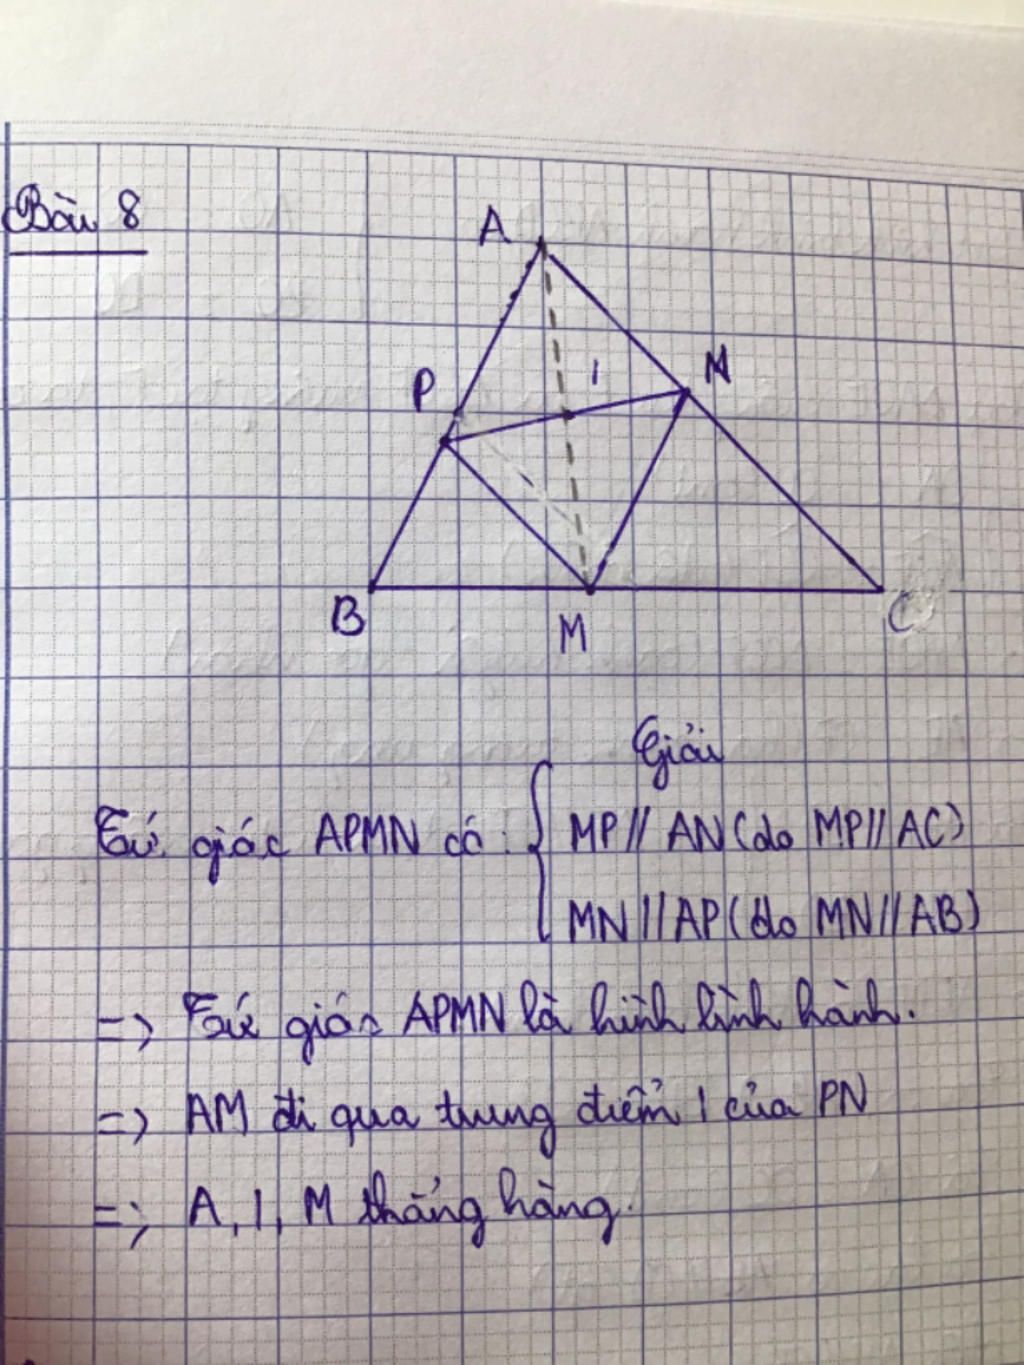 Bài 8
A
P
I
N
B
M
C
Giải
Tứ giác APMN có: MP // AN (do MP // AC)
MN // AP (do MN // AB)
=> Tứ giác APMN là hình bình hành.
=> AM đi qua trung điểm I của PN
=> A, I, M thẳng hàng.